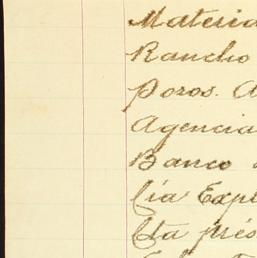 Materia
Rancho
Pozos. A
Agencia
Banco
Cía Expl
Cta prés